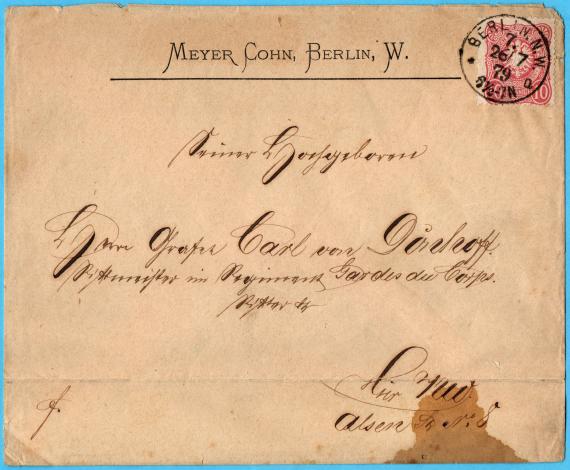 MEYER COHN, BERLIN, W.
BERLIN. N.W.
7.
26 7
79
6½-7N
a
10
Seiner Hochgeboren
Herrn Grafen Carl von Dönhoff.
Rittmeister im Regiment Gardes du Corps.
Ritter &
Hier NW.
Alsen Str No. 8
f.